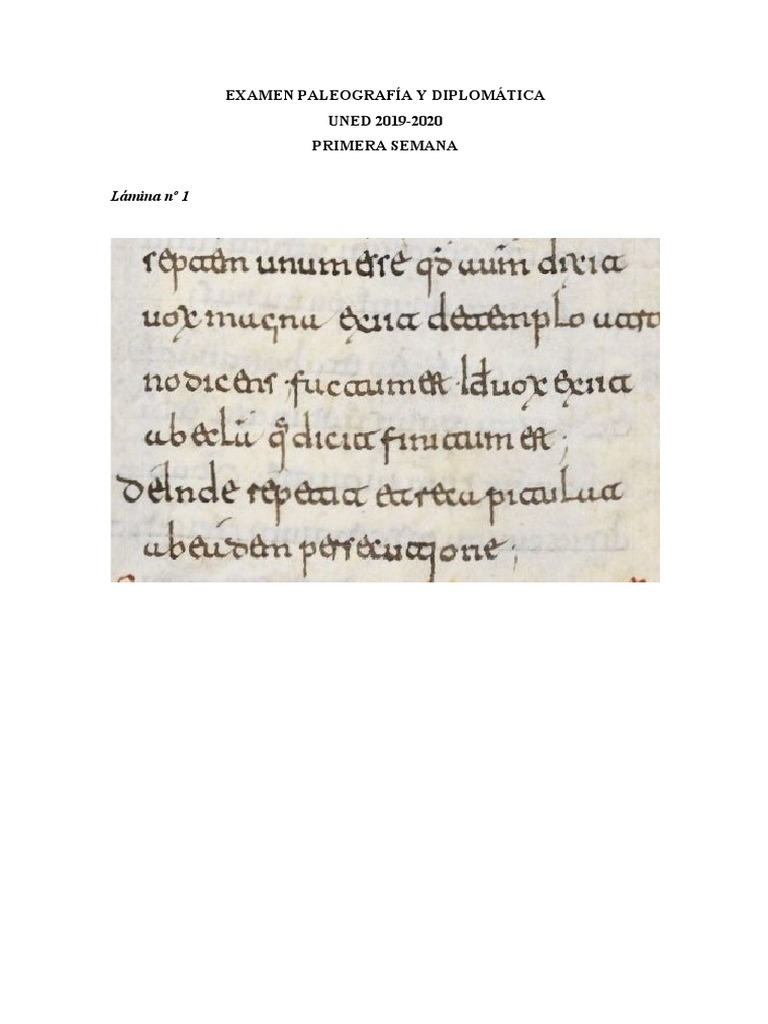 EXAMEN PALEOGRAFÍA Y DIPLOMÁTICA
UNED 2019-2020
PRIMERA SEMANA
Lámina nº 1
septem unum esse qd aum dixit
uox magna exiit de templo a tro
no dicens ; factum est Id uox exiit
ab ecla q dicit finitum est ;
deInde repetit et recapitulat
ab eadem persecutione ;